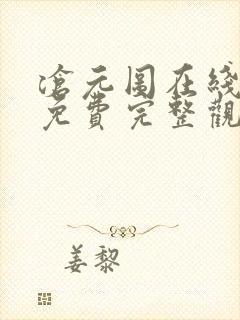 滄元圖在綫
免費完整觀
姜黎